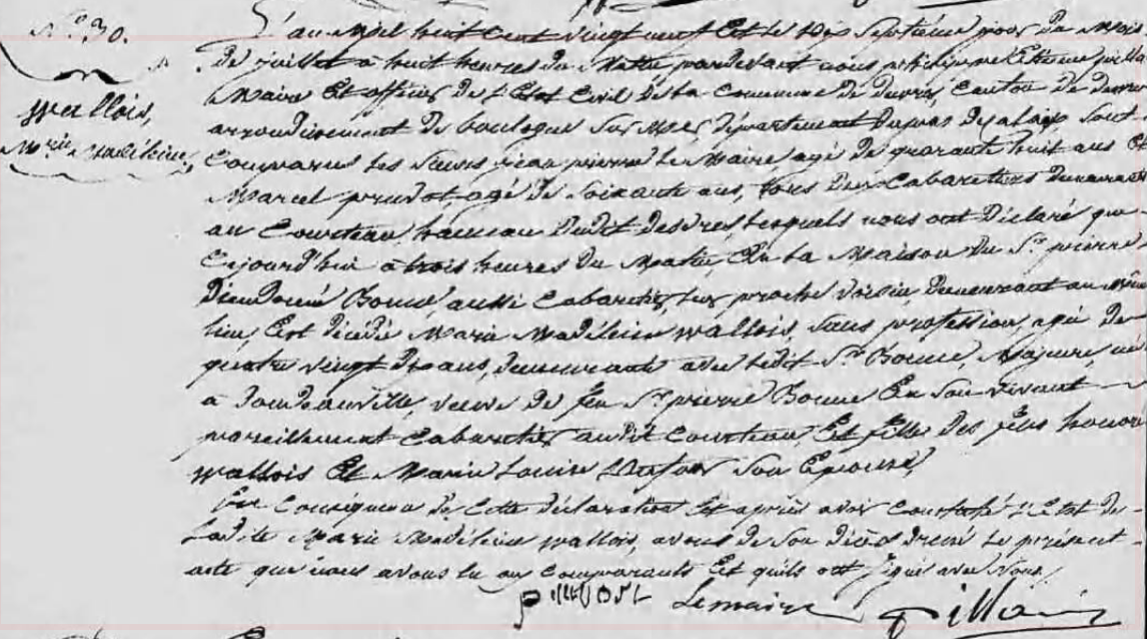 N° 30.
Wallois,
Marie Madeleine
L'an Mil huit Cent vingt neuf Et le Dix Septième jour du Mois
De juillet à huit heures du Matin pardevant nous
Maire Et officier de l'Etat Civil De la Commune De Desvres, Canton de Desvres
arrondissement De boulogne Sur Mer, Département Dupas Decalais, Sont
Comparus les Sieurs jean pierre Le Maire agé de quarante huit ans Et
Marcel pruvot agé De Soixante ans, tous Deux Cabaretiers Demeurants
au Courteau, hameau Dudit Desvres Lesquels nous ont Déclaré que
Cejourd'hui à trois heures du Matin, En La Maison du Sr. pierre
Dieudonné Bonne, aussi Cabaretier, leur proche Voisin Demeurant au même
lieu, Est Décédée Marie Madeleine Wallois, Sans profession, agée De
quatre vingt Dix ans, Demeurante avec ledit Sr. Bonne, Majeure, née
à Doudeauville, veuve De feu Sr. pierre Bonne En Son vivant
pareillement Cabaretier audit Courteau, Et fille Des feus honoré
Wallois Et Marie Louise Son Epouse,
En Conséquence De Cette Déclaration Et après avoir Constaté l'Etat De
Ladite Marie Madeleine Wallois, avons De Son Décès Dressé Le présent
acte que nous avons lu aux Comparants Et qu'ils ont Signé avec Nous
pruvost Lemaire